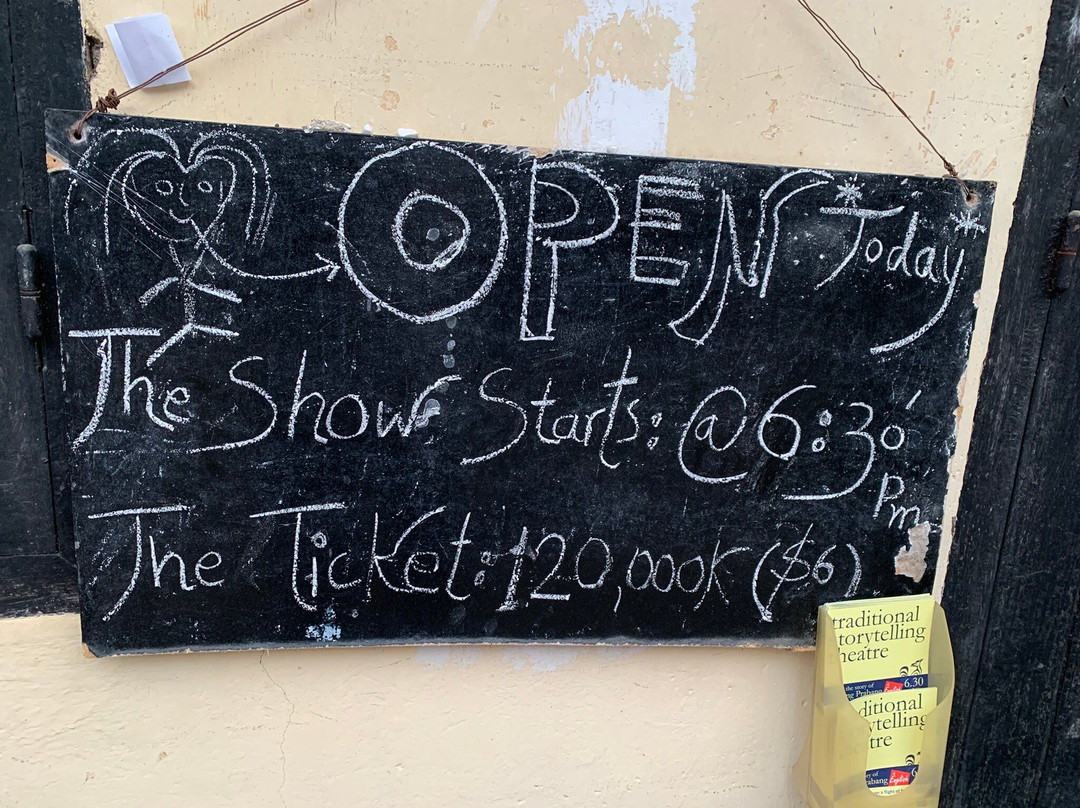 OPEN Today
The Show Starts: @ 6:30'
Pm
The Ticket: 120,000K ($6)
traditional
torytelling
heatre
the story of
ng Prabang English 6.30
ditional
ytelling
tre
ry of
abang English 6